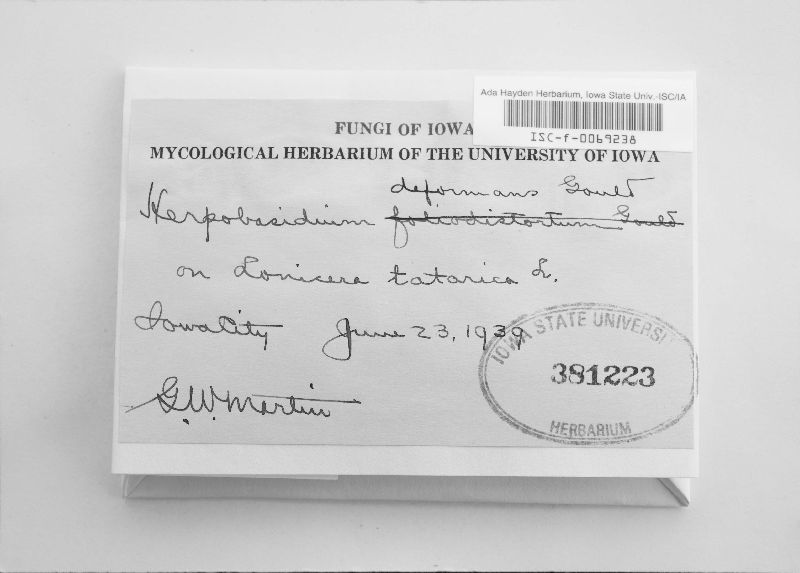 Ada Hayden Herbarium, Iowa State Univ.-ISC/IA
ISC-f-0069238
FUNGI OF IOWA
MYCOLOGICAL HERBARIUM OF THE UNIVERSITY OF IOWA
deformans Gould
Herpobasidium foliodistortum Gould
on Lonicera tatarica L.
Iowa City June 23, 1939
G.W. Martin
IOWA STATE UNIVERSI
381223
HERBARIUM